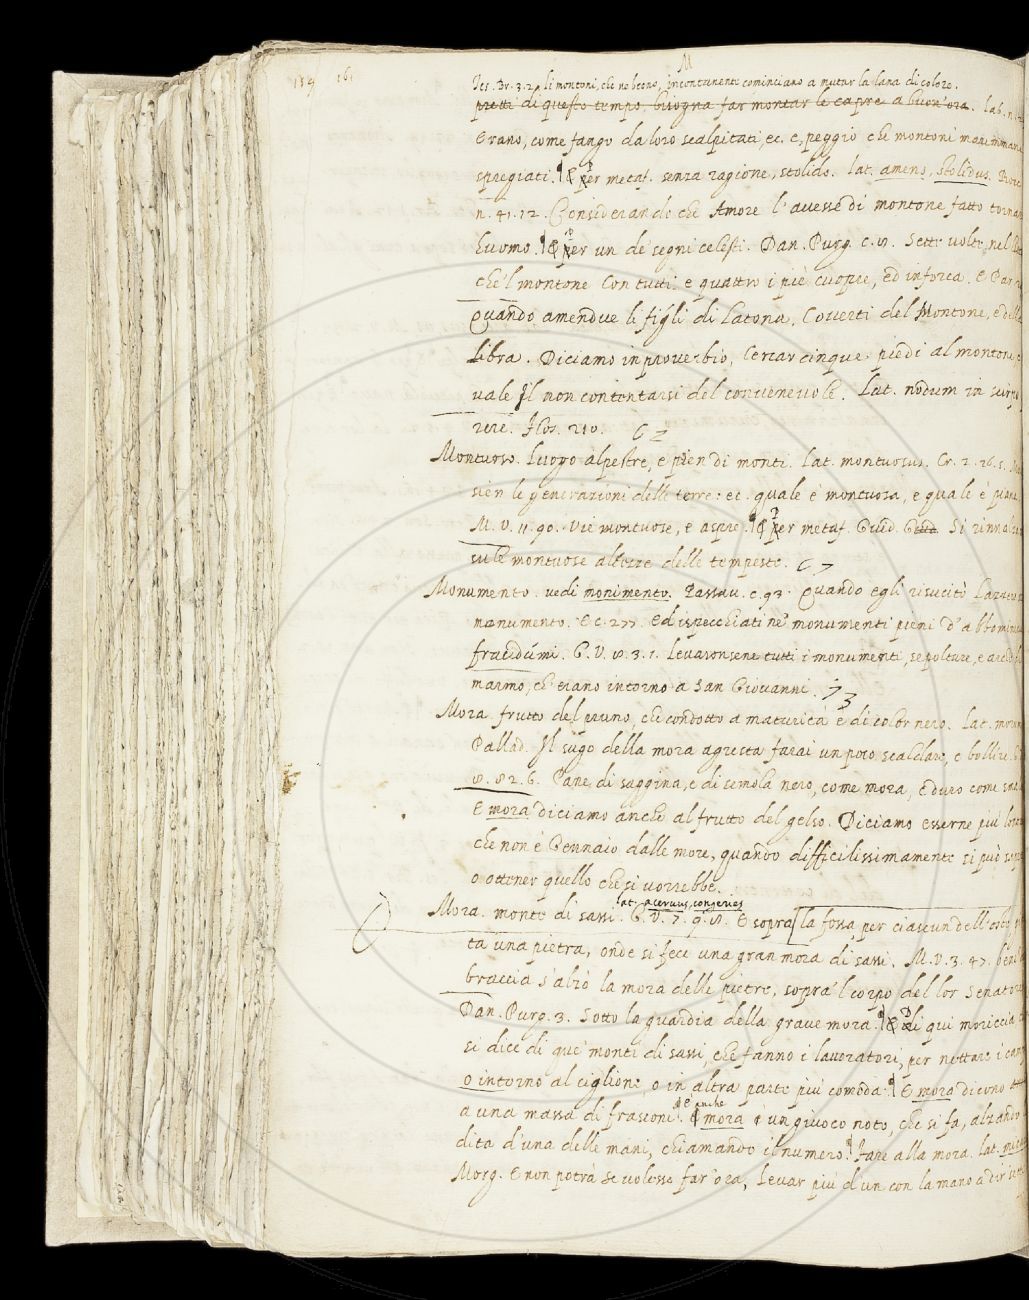 159 161
M
Tes. Br. 3. 2. li montoni, che ne beono, incontanente cominciano a mutar la lana di colore.
presti di questo tempo, bisogna far montar le capre a buon'ora. lab. n.
Erano, come fango da loro scalpitati, ec. e, peggio che montoni
spregiati. E per metaf. senza ragione, stolido. Lat. amens, stolidus.
n. 41. 12. Considerando che Amore l'avesse di montone fatto tornar
huomo. E per un de' segni celesti. Dan. Purg. c. 8. Sette volte, nel
che'l montone Con tutti e quattro i piè cuopre, ed inforca. E Par
Quando amendue li figli di Latona, Coverti del Montone, e della
libra. Diciamo in proverbio, Cercar cinque piedi al montone
vale Il non contentarsi del convenevole. Lat. nodum in scirpo
rere. Flos. 210. 62
Montuoso. Luogo alpestre, e pien di monti. Lat. montuosus. Cr. 2. 26. 5.
sien le generazioni delle terre: ec. quale è montuosa, e quale è piana
M. V. 11. 90. Vie montuose, e aspre. E per metaf. Guid. Guid. Si rinnalza
sulle montuose altezze delle tempeste. 67
Monumento. vedi monimento. Passav. c. 93. Quando egli risucitò Lazzero
monumento. E c. 277. Ed ispecchiati ne' monumenti pieni d'abbomine
fracidúmi. G. V. 8. 3. 1. Levaronsene tutti i monumenti, sepolture, e
marmo, ch'erano intorno a San Giovanni. 73
Mora. frutto del pruno, che condotto a maturità è di color nero. Lat.
Pallad. Il sugo della mora agresta farai un poco scaldare, e bollire.
8. 82. 6. Pane di saggina, e di semola nero, come mora, e duro come
E mora diciamo anche al frutto del gelso. Diciamo esserne più
che non è Gennaio dalle more, quando difficilissimamente si può
o ottener quello che si vorrebbe.
lat. acervus, congeries
Mora. monte di sassi. G. V. 7. 9. 8. E sopra la fossa per ciascun dell'oste
ta una pietra, onde si fece una gran mora di sassi. M. V. 3. 47.
braccia s'alzò la mora delle pietre, sopra'l corpo del lor Senatore
Dan. Purg. 3. Sotto la guardia della grave mora. E di qui moriccia
si dice di que' monti di sassi, che fanno i lavoratori, per nettare i
o intorno al ciglione, o in altra parte più comoda. E mora dicono
e anche
a una massa di frasconi. E mora è un givoco noto, che si fa, alzando
dita d'una delle mani, chiamando il numero. Fare alla mora. Lat.
Morg. E non potrà se volesse far'ora, Levar più d'un con la mano a dir